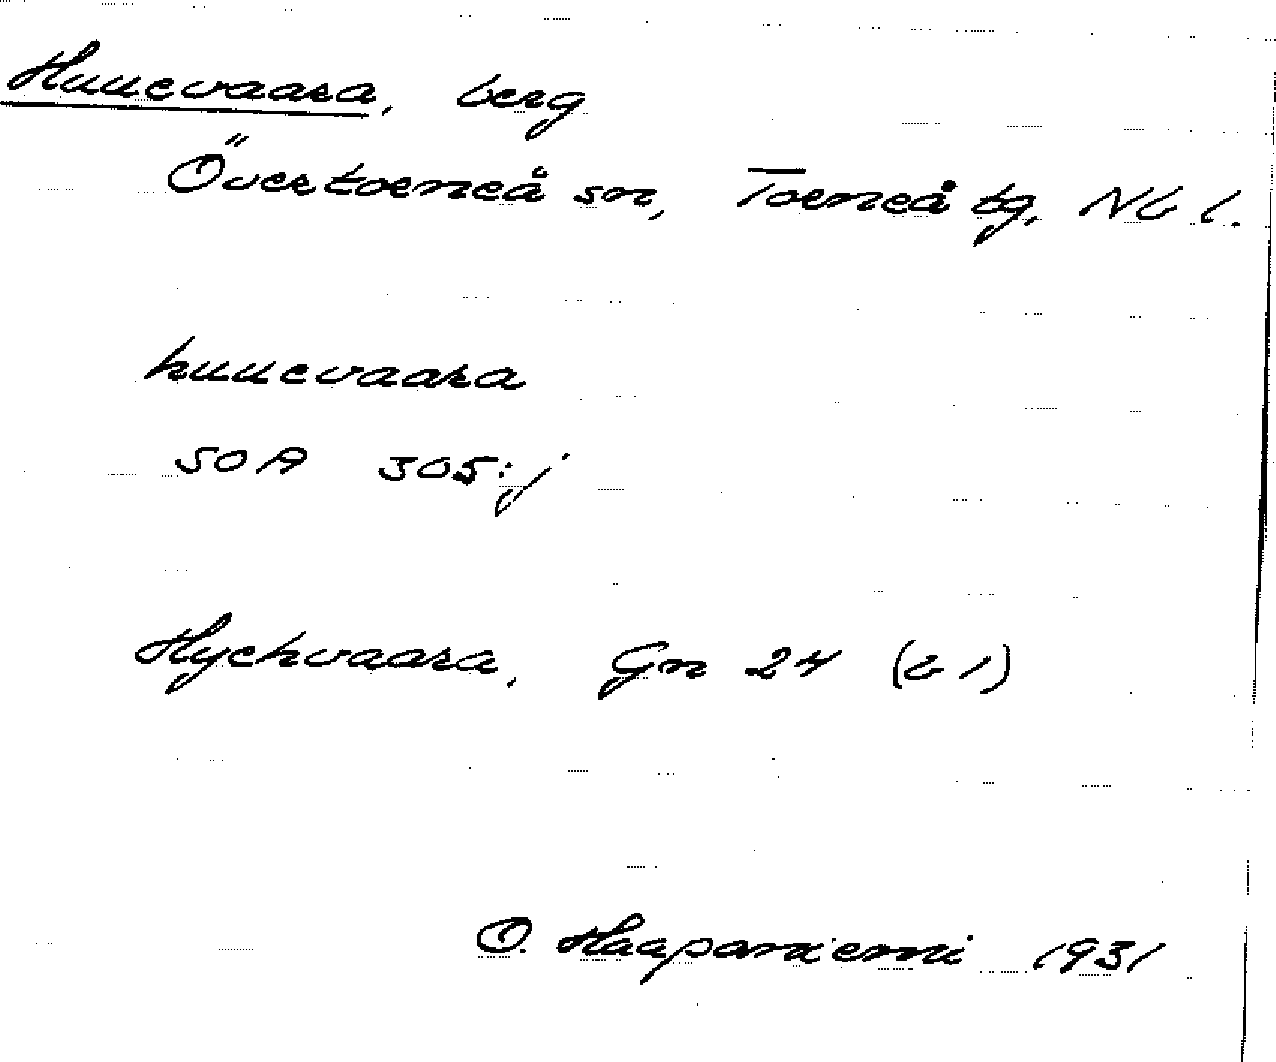 Huuevaara, berg
Övertorneå sn, Torneå tg, Nb l.
huuevaara
SOA 305:j
Gn 24 (b 1)
O. Haapaniemi 1931